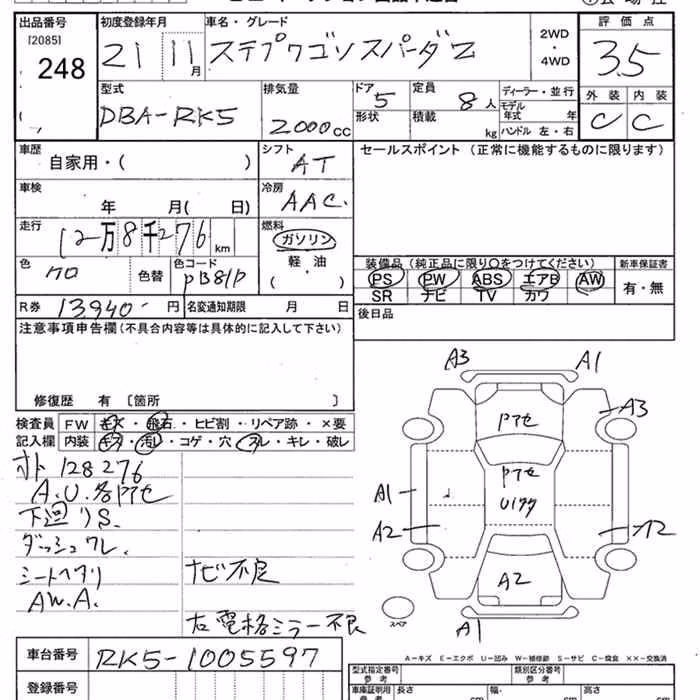 出品番号 初度登録年月 車名・グレード 評価点
[2085] 248 21 11月 ステプワゴンスパーダZ 2WD・4WD 3.5
型式 排気量 ドア 定員 ディーラー・並行 外装 内装
DBA-RK5 2000cc 5 8人 モデル年式 年 C C
形状 積載 kg ハンドル 左・右
車歴 シフト セールスポイント (正常に機能するものに限ります)
自家用・( ) AT
車検 冷房
年 月( 日) AAC.
走行 燃料
12万8千276km ガソリン
色 色替 色コード 軽・油 装備品(純正品に限り○をつけてください) 新車保証書
クロ PB81P ( ) PS PW ABS エアB AW 有・無
SR ナビ TV カワ
R券 13940- 円 名変通知期限 月 日 後日品
注意事項申告欄(不具合内容等は具体的に記入して下さい)
修復歴 有 [箇所 ]
検査員 FW キズ・飛石・ヒビ割・リペア跡・×要
記入欄 内装 キズ・汚レ・コゲ・穴・スレ・キレ・破レ
128276
A.U.各Pアセ
下廻リS.
ダッシュワレ.
シートヘタリ ナビ不良
AW.A.
左電格ミラー不良
A3 A1
A3
Pアセ
Pアセ
A1
A2 A2
A2
スペア
A1
車台番号 RK5-1005597
A-キズ E-エクボ U-凹み W-補修跡 S-サビ C-腐食 XX-交換済
登録番号 型式指定番号 参考 類別区分番号 参考
車庫証明用 参考 長さ cm 幅 cm 高さ cm